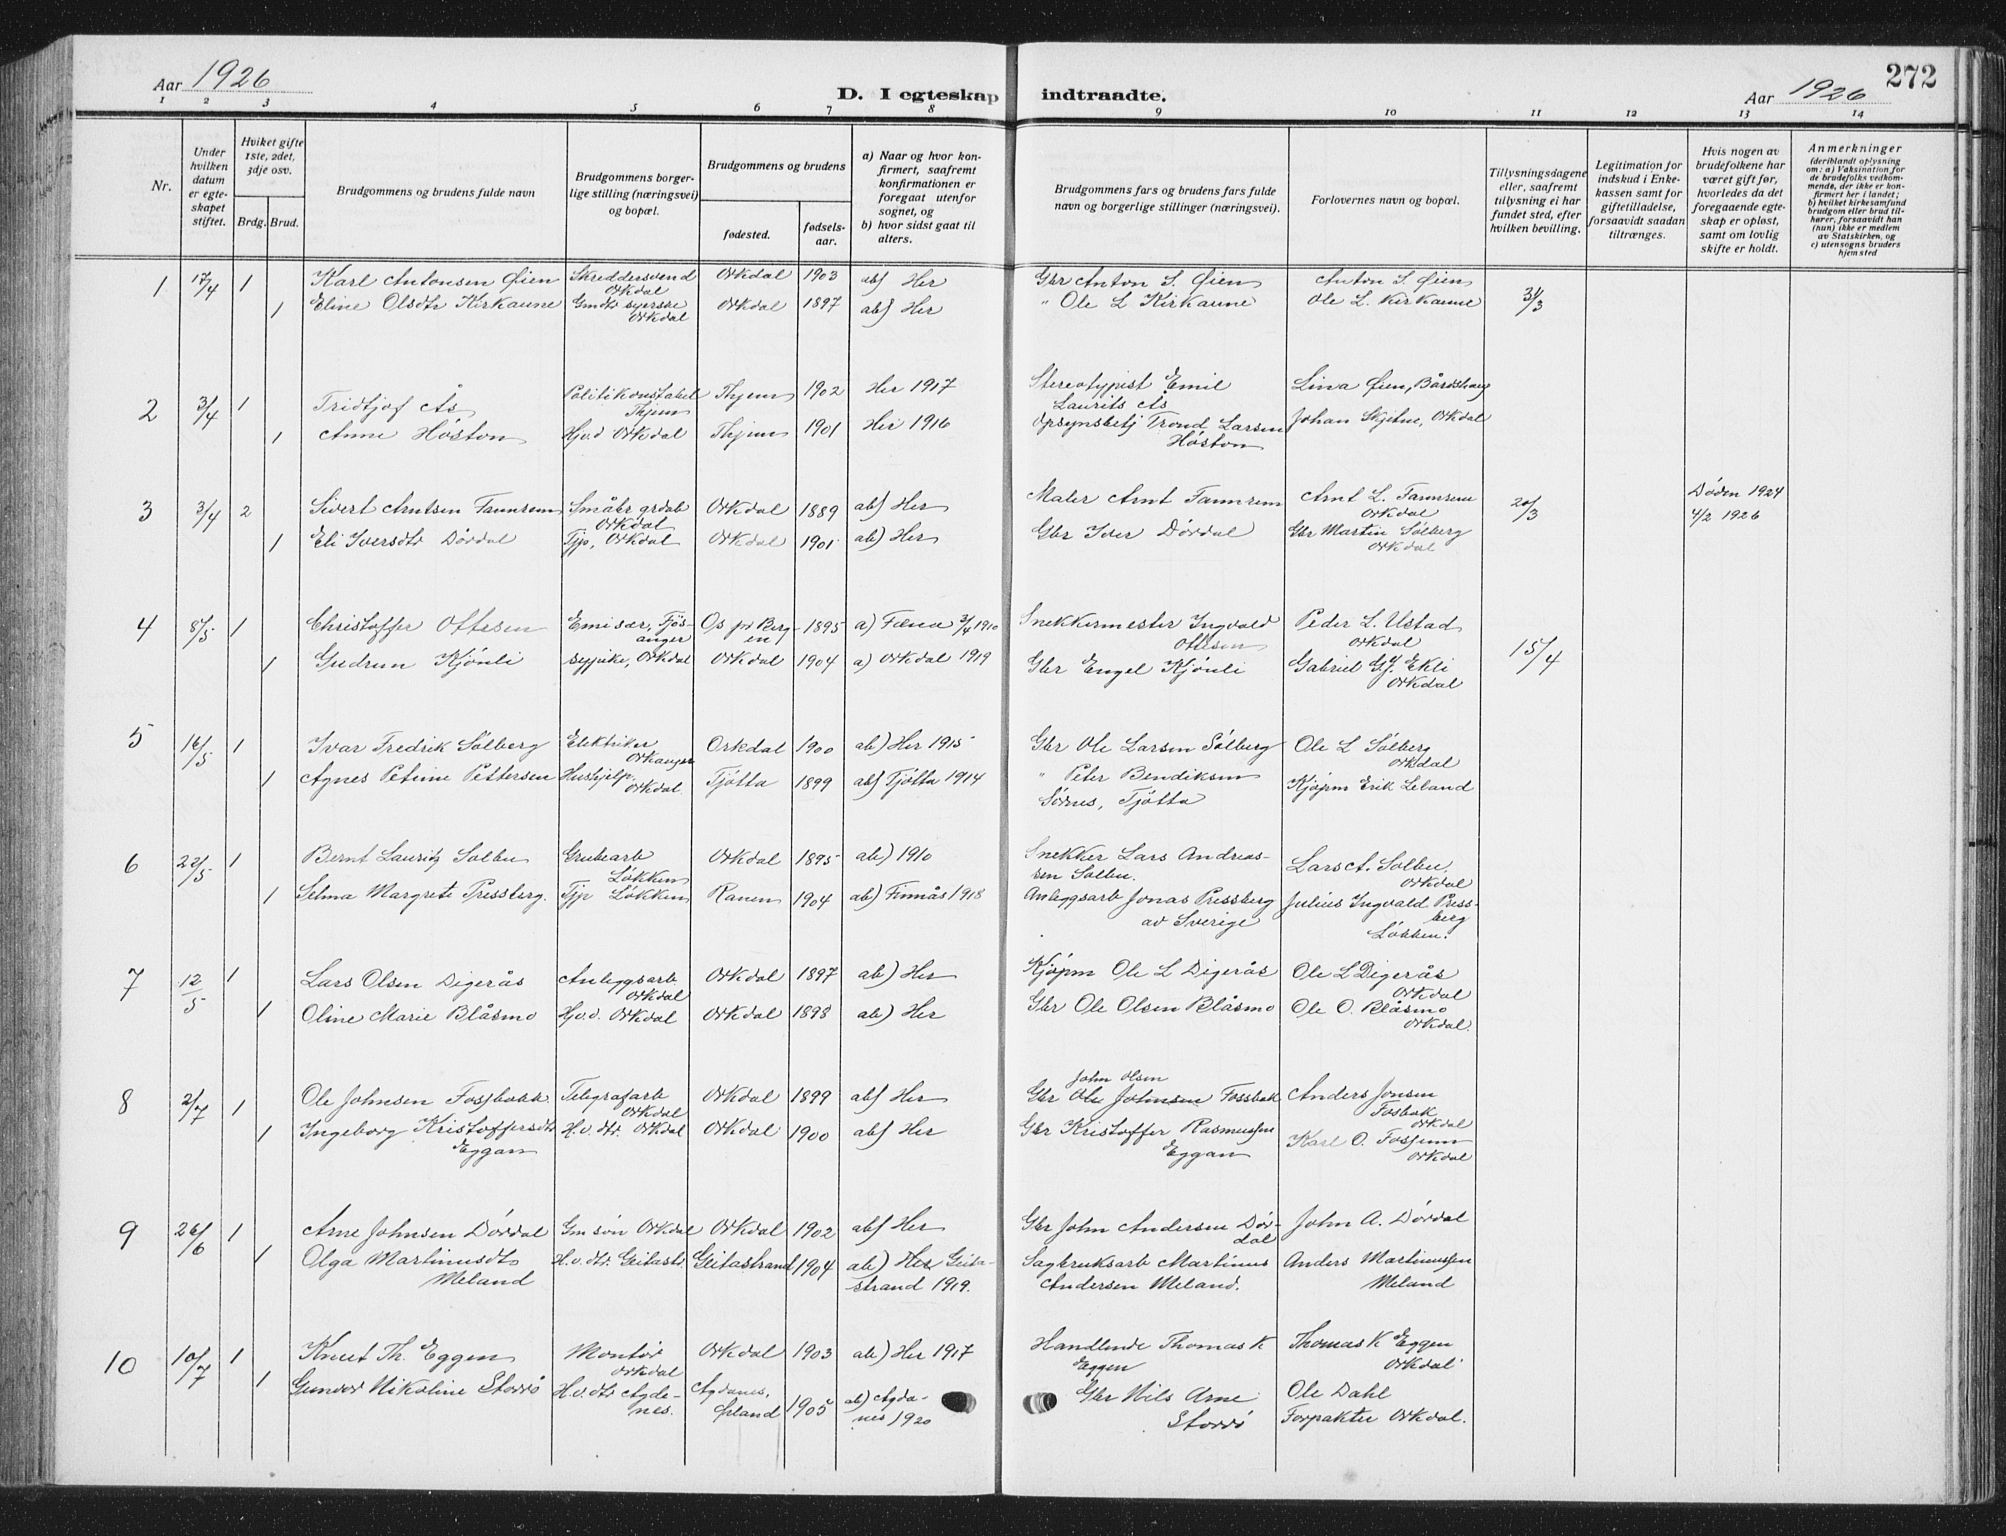 Aar 1926
D. I egteskap indtraadte.
Aar 1926
272
1 2 3 4 5 6 7 8 9 10 11 12 13 14
Nr.
Under hvilken datum er egteskapet stiftet.
Hviket gifte 1ste, 2det, 3dje osv.
Brdg. Brud.
Brudgommens og brudens fulde navn
Brudgommens borgerlige stilling (næringsvei) og bopæl.
Brudgommens og brudens
fødested.
fødselsaar.
a) Naar og hvor konfirmert, saafremt konfirmationen er foregaat utenfor sognet, og
b) hvor sidst gaat til alters.
Brudgommens fars og brudens fars fulde navn og borgerlige stillinger (næringsvei).
Forlovernes navn og bopæl.
Tillysningsdagene eller, saafremt tillysning ei har fundet sted, efter hvilken bevilling.
Legitimation for indskud i Enkekassen samt for giftetilladelse, forsaavidt saadan tiltrænges.
Hvis nogen av brudefolkene har været gift før, hvorledes da det foregaaende egteskap er opløst, samt om lovlig skifte er holdt.
Anmerkninger
(deriblandt oplysning om: a) Vaksination for de brudefolks vedkommende, der ikke er konfirmert her i landet; b) hvilket kirkesamfund brudgom eller brud tilhører, forsaavidt han (hun) ikke er medlem av Statskirken, og c) utensogns bruders hjemsted
1 17/4 1 Karl Antonsen Øien Skreddersvend Orkdal Orkdal 1903 ab) Her Gbr Anton S. Øien Anton S. Øien 31/3
1 Eline Olsdtr Kirkaune Gmdtr syerske Orkdal Orkdal 1897 ab) Her " Ole L Kirkaune Ole L. Kirkaune
2 3/4 1 Fridtjof Ås Politikonstabel Thjem Thjem 1902 Her 1917 Stereotypist Emil Laurits Ås Lina Øien, Bårdshaug
1 Anne Høston Hjvd Orkdal Thjem 1901 Her 1916 Opsynsbetj Trond Larsen Høston Johan Skjetne, Orkdal
3 3/4 2 Sivert Arntsen Fannrem Småbr grdarb Orkdal Orkdal 1889 ab) Her Maler Arnt Fannrem Arnt L. Fannrem Orkdal 20/3 Døden 1924 4/2 1926
1 Eli Iversdtr Dørdal Tjp, Orkdal Orkdal 1901 ab) Her Gbr Iver Dørdal Gbr Martin Sølberg Orkdal
4 8/5 1 Christoffer Ottesen Emisær, Fjøsanger Os pr Bergen 1895 a) Fana 3/4 1910 Snekkermester Ingvald Ottesen Peder L. Ustad Orkdal 15/4
1 Gudrun Kjønli sypike, Orkdal Orkdal 1904 a) Orkdal 1919 Gbr Engel Kjønli Gabriel G. Ekli Orkdal
5 16/5 1 Ivar Fredrik Sølberg Elektriker Orkanger Orkdal 1900 ab) Her 1915 Gbr Ole Larsen Sølberg Ole L Sølberg Orkdal
1 Agnes Petrine Pettersen Hushjelp. Orkdal. Tjøtta 1899 ab) Tjøtta 1914 " Peter Bendiksen Sørnes, Tjøtta Kjøpm Erik Leland
6 22/5 1 Bernt Lauritz Solbu Grubearb Løkken Orkdal 1895 ab) 1910 Snekker Lars Andreassen Solbu. Lars A. Solbu, Orkdal
1 Selma Margrete Pressberg. Tjp Løkken Ranen 1904 ab) Finnås 1918 Anleggsarb Jonas Pressberg av Sverige Julius Ingvald Pressberg Løkken.
7 12/5 1 Lars Olsen Digerås Anleggsarb Orkdal Orkdal 1897 ab) Her Kjøpm Ole L Digerås Ole L Digerås Orkdal
1 Oline Marie Blåsmo Hj.v.d. Orkdal Orkdal 1898 ab) Her Gbr Ole Olsen Blåsmo Ole O. Blåsmo Orkdal.
8 2/7 1 Ole Johnsen Fossbakk Telegrafarb Orkdal Orkdal 1899 ab) Her Gbr John Olsen Ole Johnsen Fossbak Anders Jonsen Fosbak Orkdal
1 Ingeborg Kristoffersdtr Eggan H.v.dtr. Orkdal Orkdal 1900 ab) Her Gbr Kristoffer Rasmussen Eggan Karl O. Fossum Orkdal
9 26/6 1 Arne Johnsen Dørdal Gm søn Orkdal Orkdal 1902 ab) Her Gbr John Andersen Dørdal John A. Dørdal
1 Olga Martinusdtr Meland H.v.dtr. Geitastr. Geitastrand 1904 ab) Her Geitastrand 1919. Sagbruksarb Martinus Andersen Meland. Anders Martinussen Meland
10 10/7 1 Knut Th. Eggen Montør Orkdal Orkdal 1903 ab) Her 1917 Handlende Thomas K Eggen Thomas K Eggen Orkdal
1 Gunvor Nikoline Storrø H.v.dtr Agdenes. Agdanes, Ørland 1905 ab) Agdanes 1920 Gbr Nils Arne Storrø Ole Dahl Forpakter Orkdal.